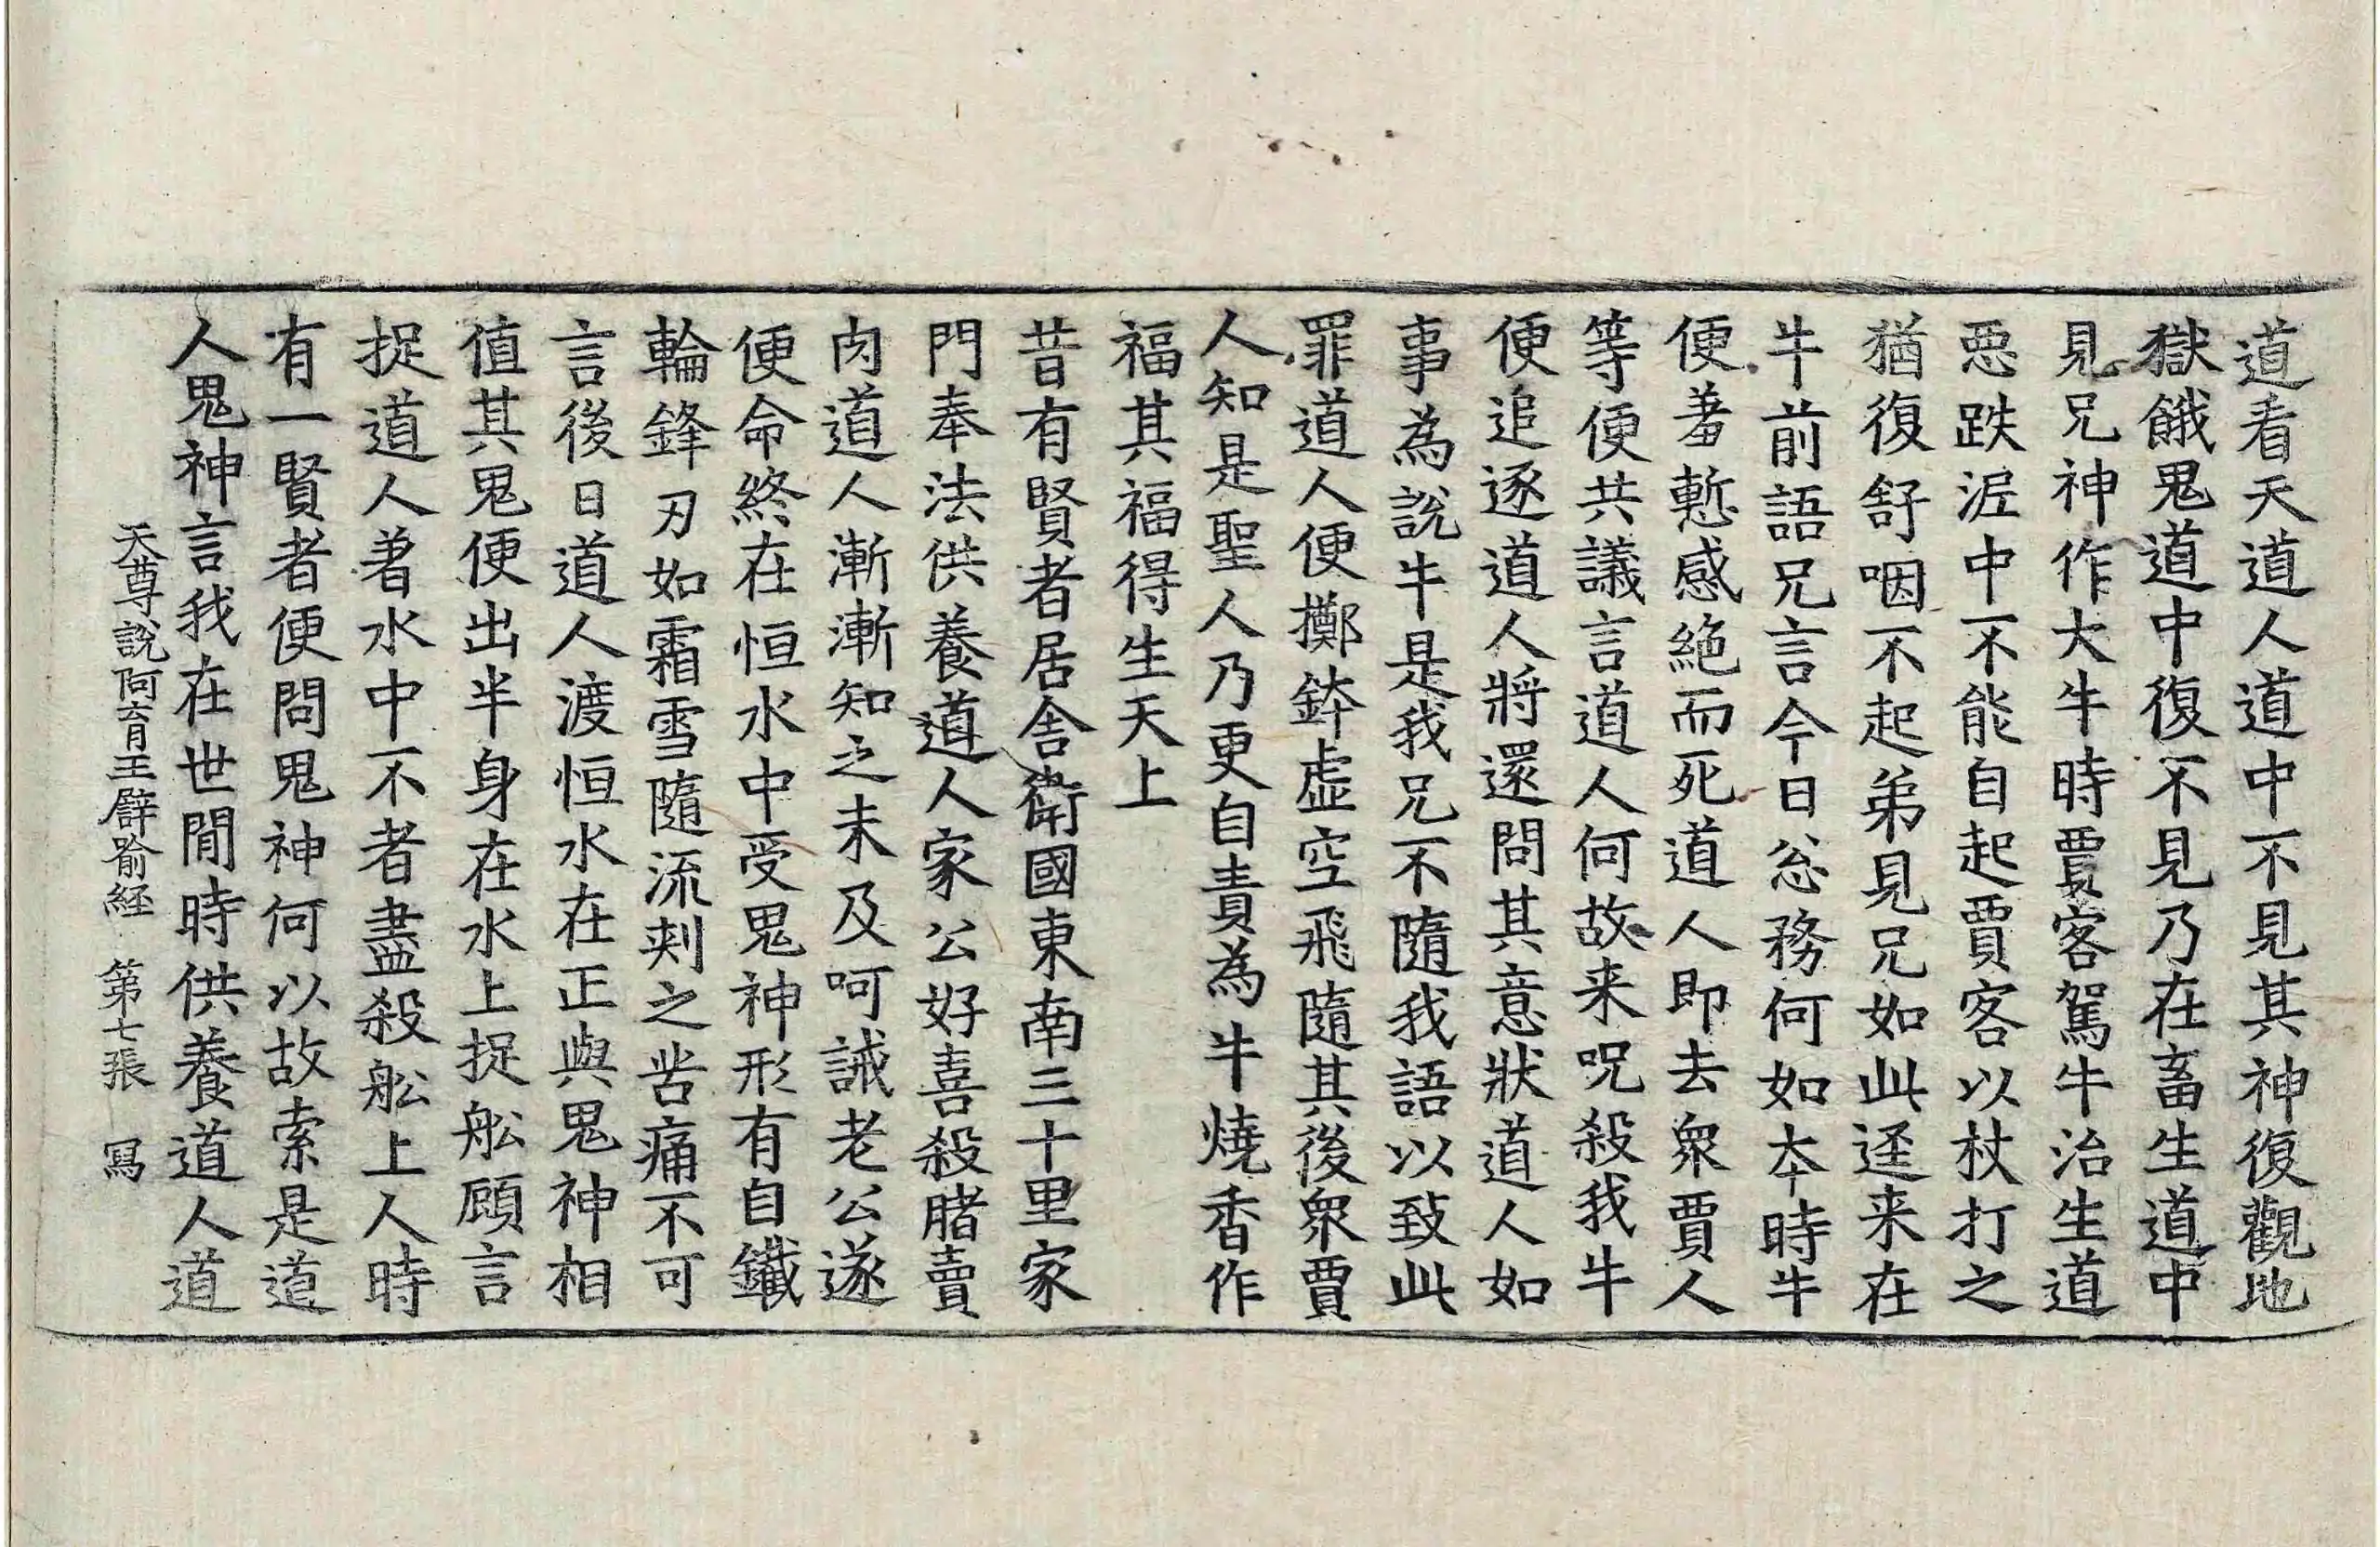 道看天道人道中不見其神復觀地
獄餓鬼道中復不見乃在畜生道中
見兄神作大牛時賈客駕牛治生道
惡跌泥中不能自起賈客以杖打之
猶復舒咽不起弟見兄如此逕来在
牛前語兄言今日忩務何如本時牛
便羞慙感絶而死道人即去衆賈人
等便共議言道人何故来呪殺我牛
便追逐道人將還問其意狀道人如
事為說牛是我兄不隨我語以致此
罪道人便擲鉢虛空飛隨其後衆賈
人知是聖人乃更自責為牛燒香作
福其福得生天上
昔有賢者居舍衛國東南三十里家
門奉法供養道人家公好喜殺賭賣
肉道人漸漸知之未及呵誡老公遂
便命終在恒水中受鬼神形有自鐵
輪鋒刃如霜雪隨流刾之苦痛不可
言後日道人渡恒水在正與鬼神相
值其鬼便出半身在水上捉舩顧言
捉道人著水中不者盡殺舩上人時
有一賢者便問鬼神何以故索是道
人鬼神言我在世間時供養道人道
天尊說阿育王辟喻經 第七張 冩